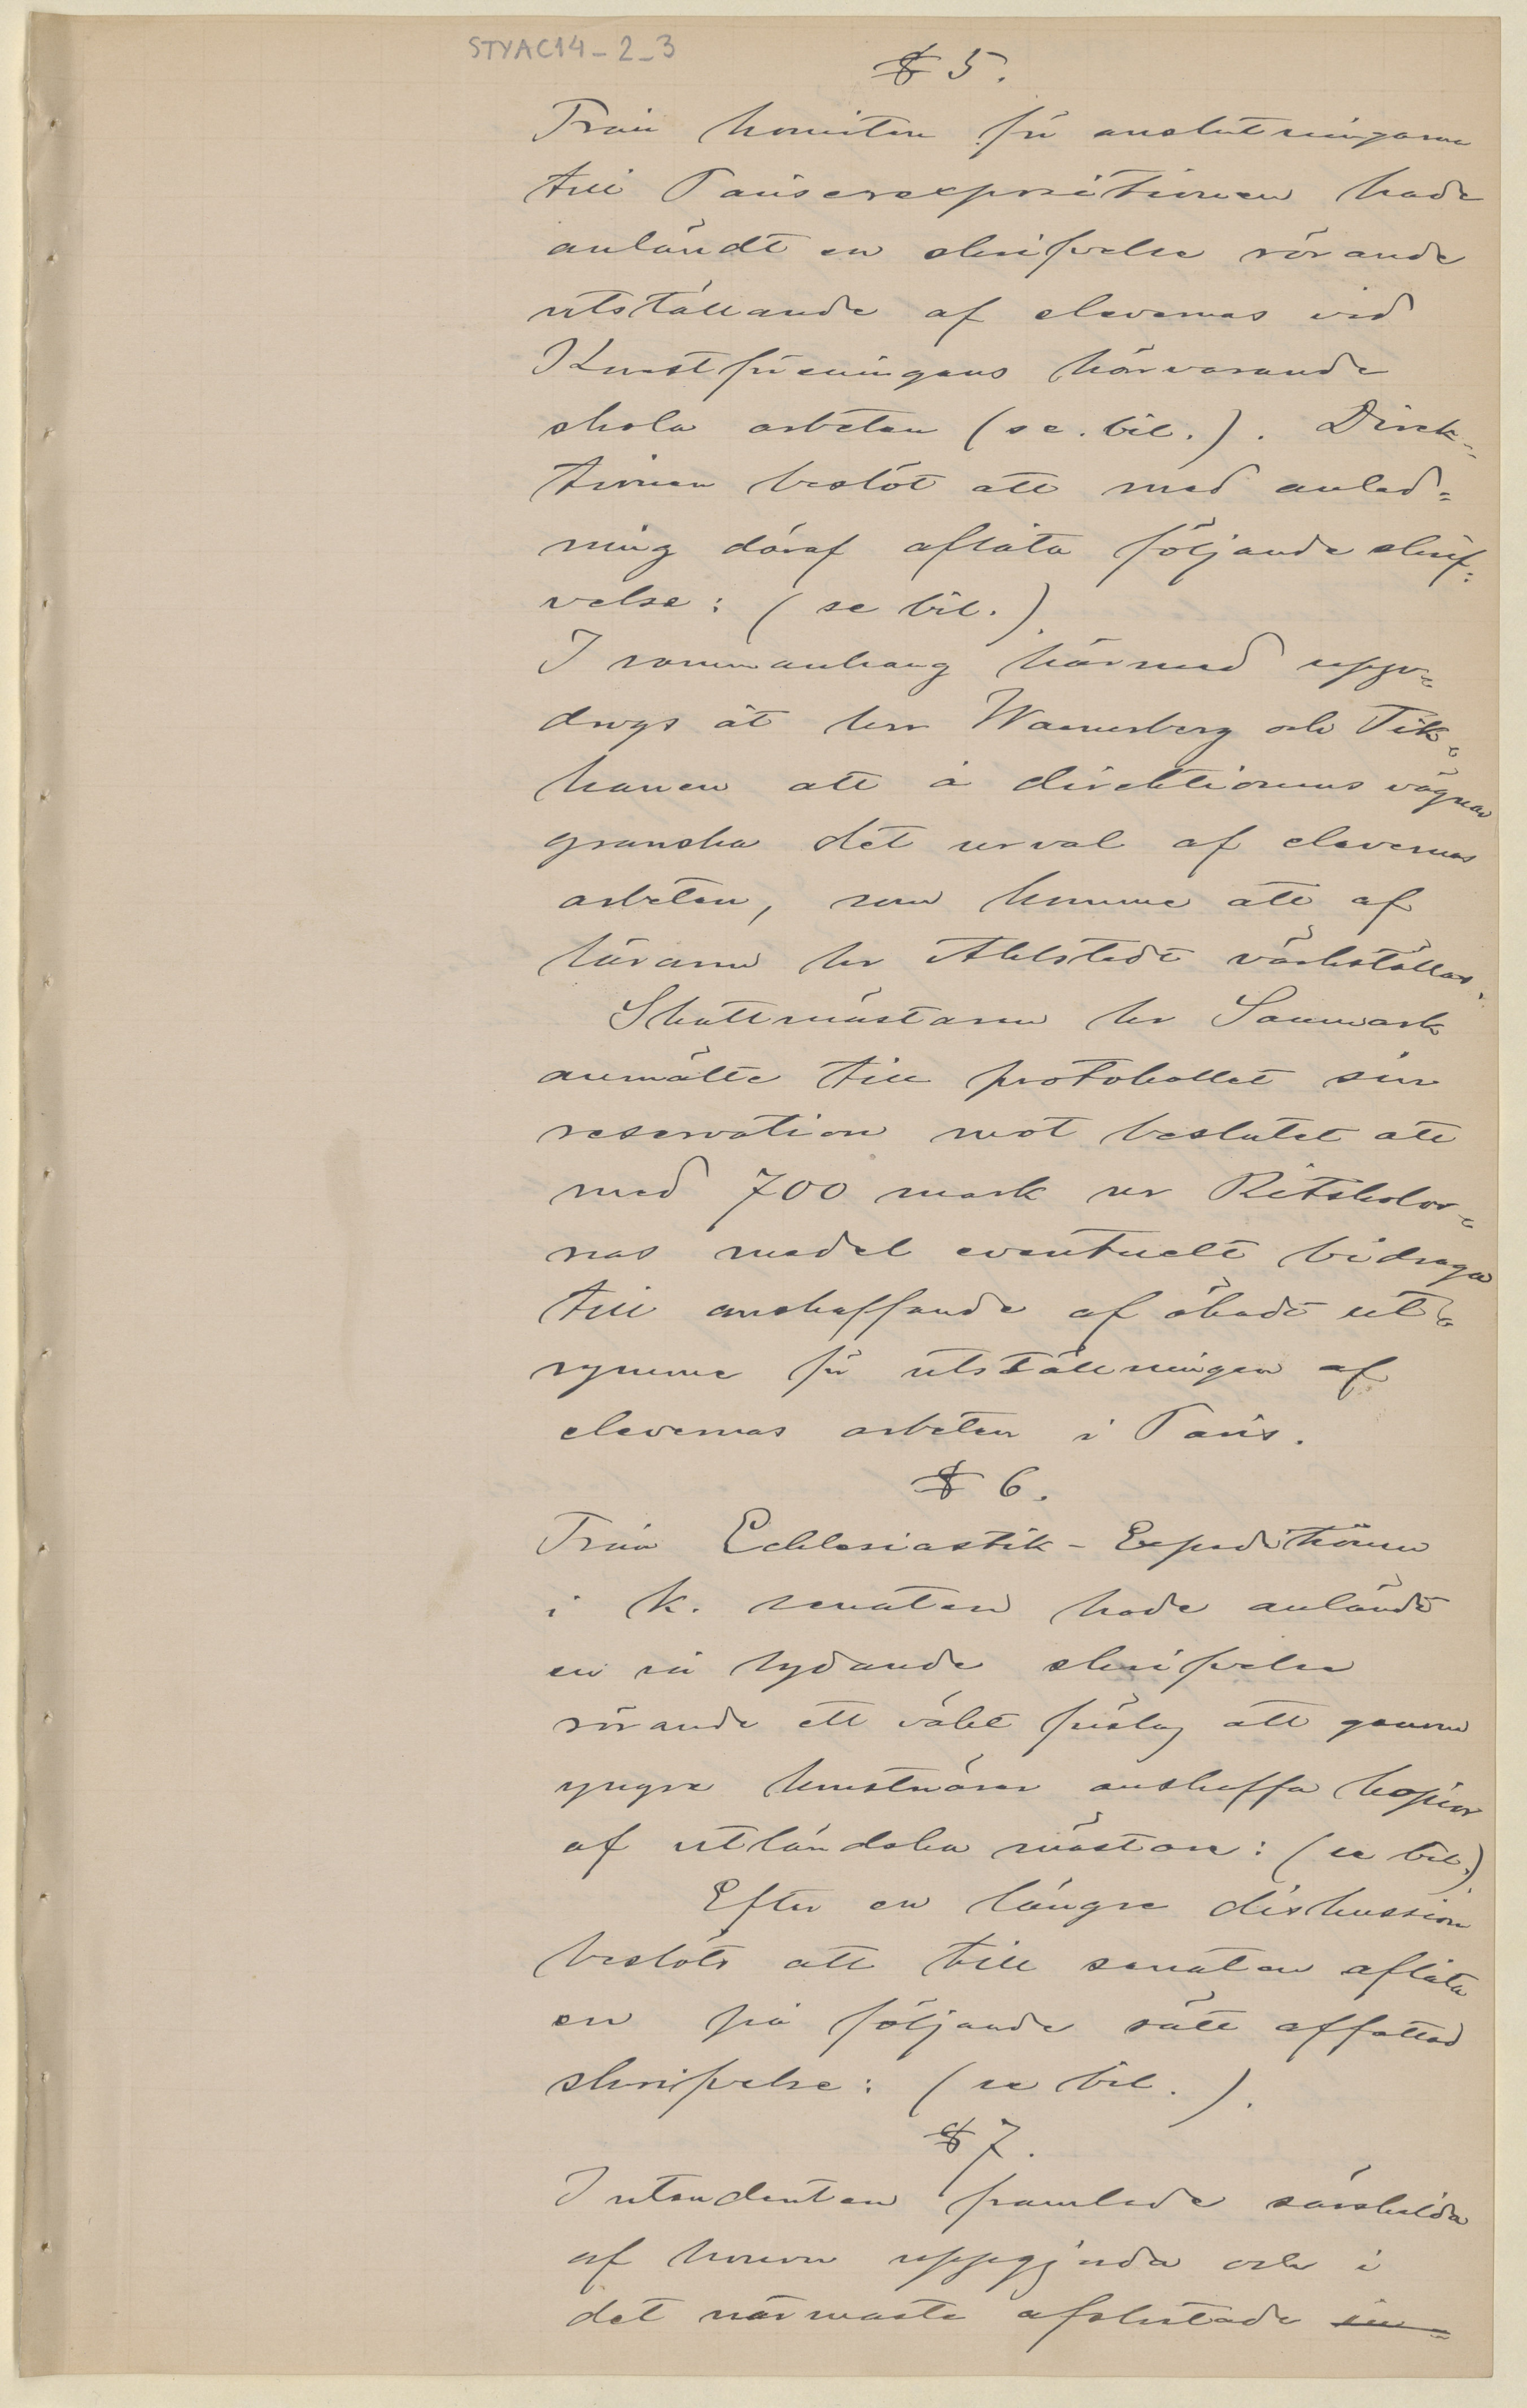 STYAC14-2-3
§ 5.
Från komitén för anslutningarne
till Pariserexpositionen hade
anländt en skrifvelse rörande
utställande af elevernas vid
Konstföreningens härvarande
skola arbeten (se. bil.). Direk-
tionen beslöt att med anled=
ning däraf aflåta följande skrif=
velse: (se bil.).
I sammanhang härmed uppd-
drogs åt herr Wasastjerna och Tik=
kanen att å direktionens vägnar
granska det urval af elevernas
arbeten, som komme att af
läraren hr Ahlstedt värkställas.
Skattmästaren hr Sanmark
anmälte till protokollet sin
reservation mot beslutet att
med 700 mark ur Ritskolor=
nas medel eventuelt bidraga
till anskaffande af ökadt ut=
rymme för utställningen af
elevernas arbeten i Paris.
§ 6.
Från Ecklesiastik-Expeditionen
i K. senaten hade anländt
en så lydande skrifvelse
rörande ett väckt förslag att genom
yngre konstnärer anskaffa kopior
af utländska mästare: (se bil.).
Efter en längre diskussion
beslöts att till senaten aflåta
en på följande sätt affattad
skrifvelse: (se bil.).
§ 7.
Intendenten framlade särskilda
af honom uppgjorda och i
det närmaste afslutade